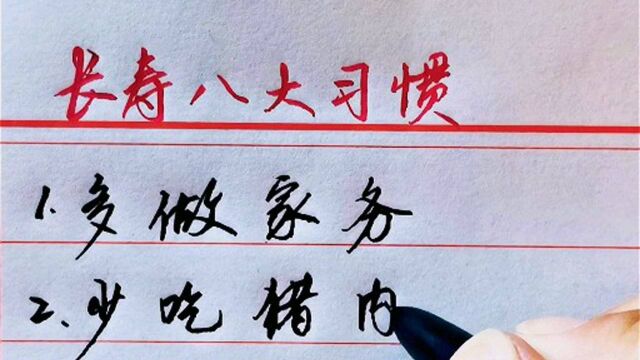 长寿八大习惯
1.多做家务
2.少吃猪内